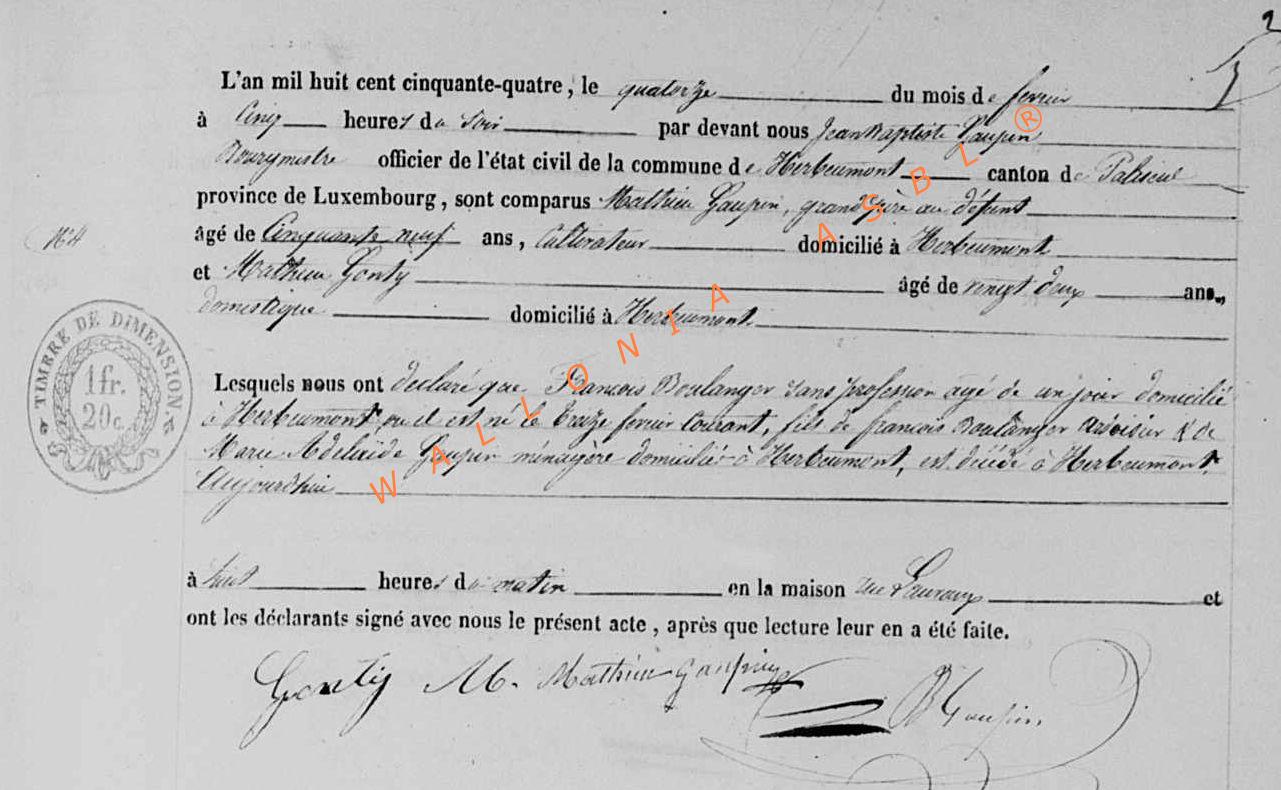 2
L'an mil huit cent cinquante-quatre, le quatorze du mois de fevrier
à Cinq heures du Soir par devant nous Jean Baptiste Gaupin
Bourgmestre officier de l'état civil de la commune de Herbeumont canton de Paliseul
province de Luxembourg, sont comparus Mathieu Gaupin, grand père au défunt
N°4
âgé de Cinquante neuf ans, Cultivateur domicilié à Herbeumont
et Mathieu Gonty âgé de vingt deux ans,
domestique domicilié à Herbeumont
TIMBRE DE DIMENSION.
1 fr.
20 c.
Lesquels nous ont declaré que François Boulanger sans profession agé de un jour domicilié
à Herbeumont ou il est né le treize fevrier Courant, fils de françois Boulanger & de
Marie Adelaïde Gaupin ménagère domicilié à Herbeumont, est décédé à Herbeumont,
Aujourdhui
à huit heures du matin en la maison et
ont les déclarants signé avec nous le présent acte, après que lecture leur en a été faite.
Gonty M. Mathieu Gaupin JB Gaupin
WALLONIA ASBL ®